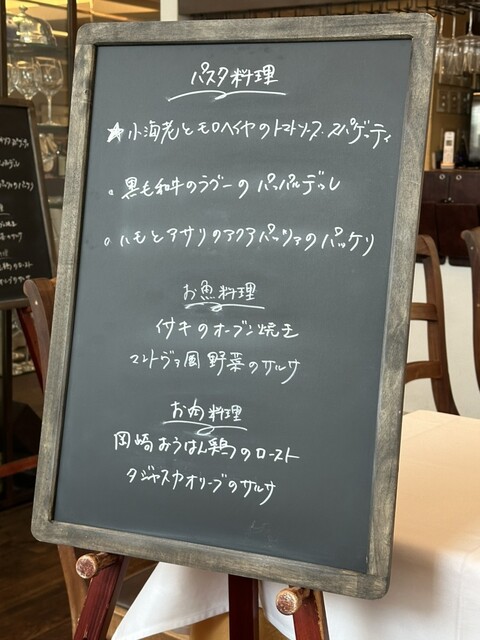 パスタ料理
★小海老とモロヘイヤのトマトソース スパゲッティ
。黒毛和牛のラグーのパッパルデッレ
。ハモとアサリのアクアパッツァのパッケリ
お魚料理
イサキのオーブン焼き
マントヴァ風 野菜のサルサ
お肉料理
岡崎おうはん鶏のロースト
タジャスカオリーブのサルサ